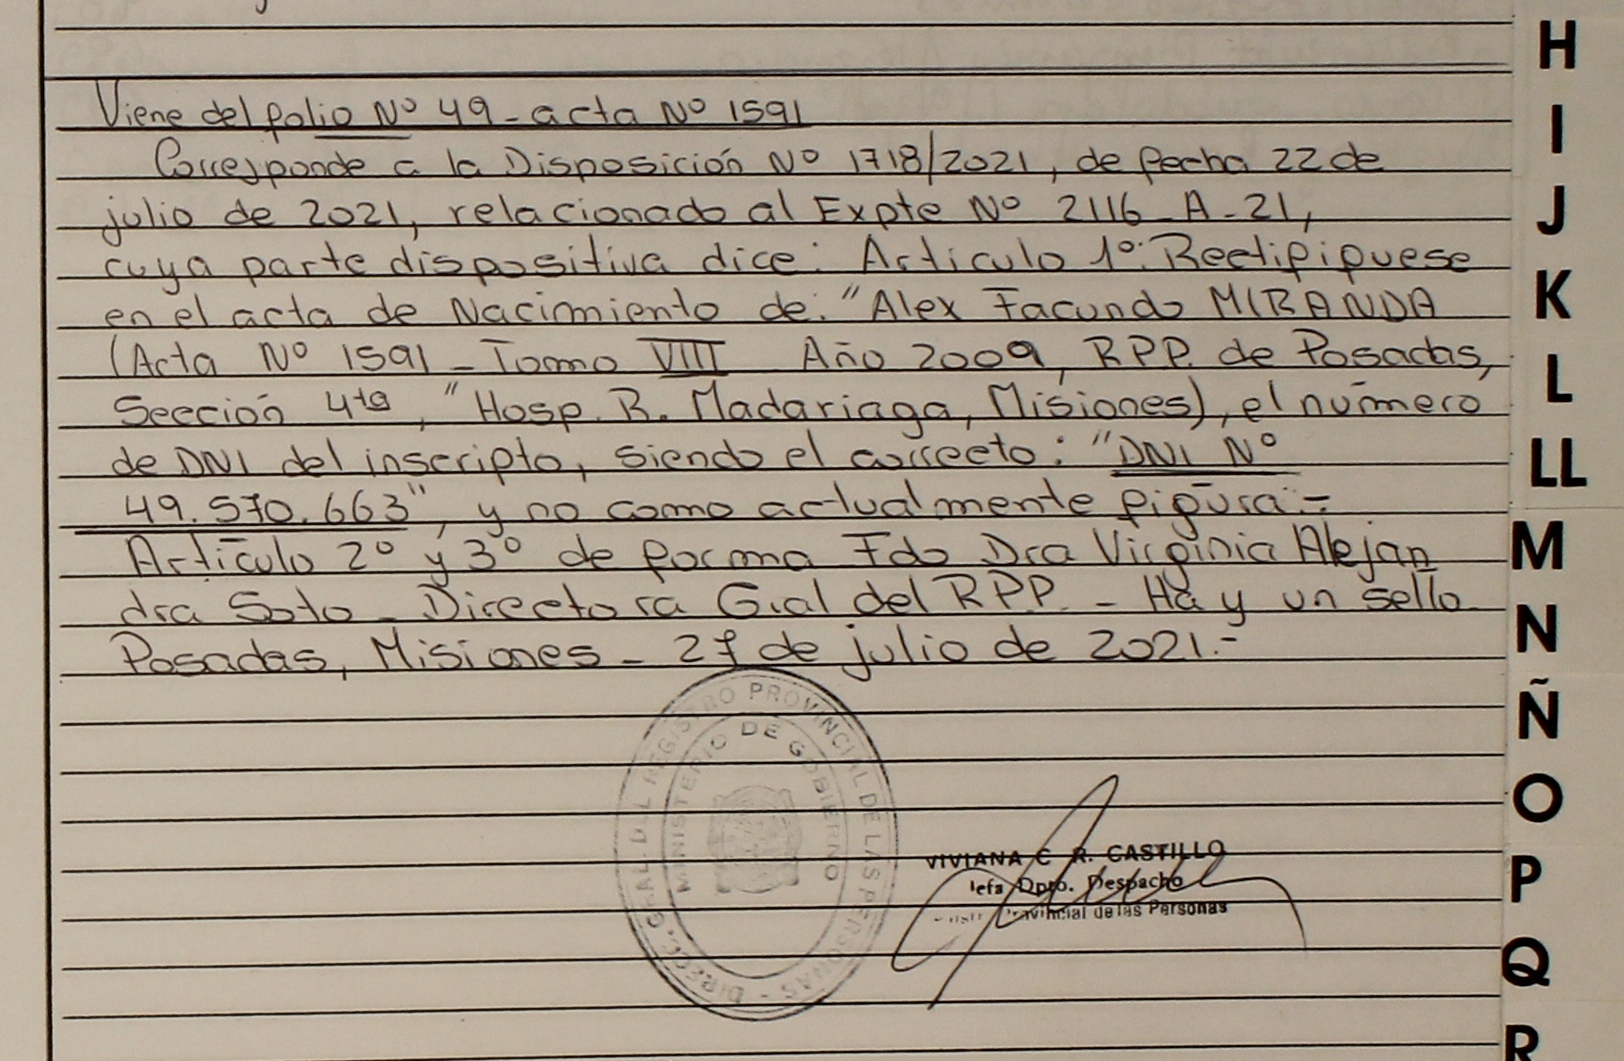 Viene del folio Nº 49 - acta Nº 1591
Corresponde a la Disposición Nº 1718/2021, de fecha 22 de
julio de 2021, relacionado al Expte Nº 2116 - A - 21,
cuya parte dispositiva dice: Articulo 1º: Rectifiquese
en el acta de Nacimiento de: "Alex Facundo MIRANDA
(Acta Nº 1591 - Tomo VIII Año 2009, R.P.P. de Posadas,
Sección 4ta, "Hosp. R. Madariaga, Misiones), el número
de DNI del inscripto, siendo el correcto: "DNI Nº
49.570.663", y no como actualmente figura.-
Artículo 2º y 3º de forma Fdo Dra Virginia Alejan
dra Soto - Directora Gral del R.P.P. - Hay un sello
Posadas, Misiones - 27 de julio de 2021.-
DIRECC. GRAL. DEL REGISTRO PROVINCIAL DE LAS PERSONAS -
MINISTERIO DE GOBIERNO
VIVIANA C. R. CASTILLO
Jefa Dpto. Despacho
Provincial de las Personas
H
I
J
K
L
LL
M
N
Ñ
O
P
Q
R